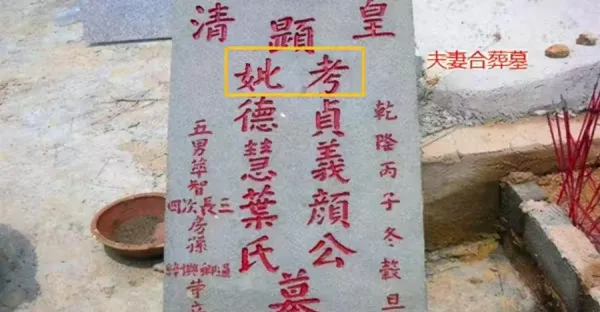 皇清
乾隆丙子冬穀旦
顯
考貞義顏公
妣德慧葉氏
墓
五男智
三長次四房孫
夫妻合葬墓